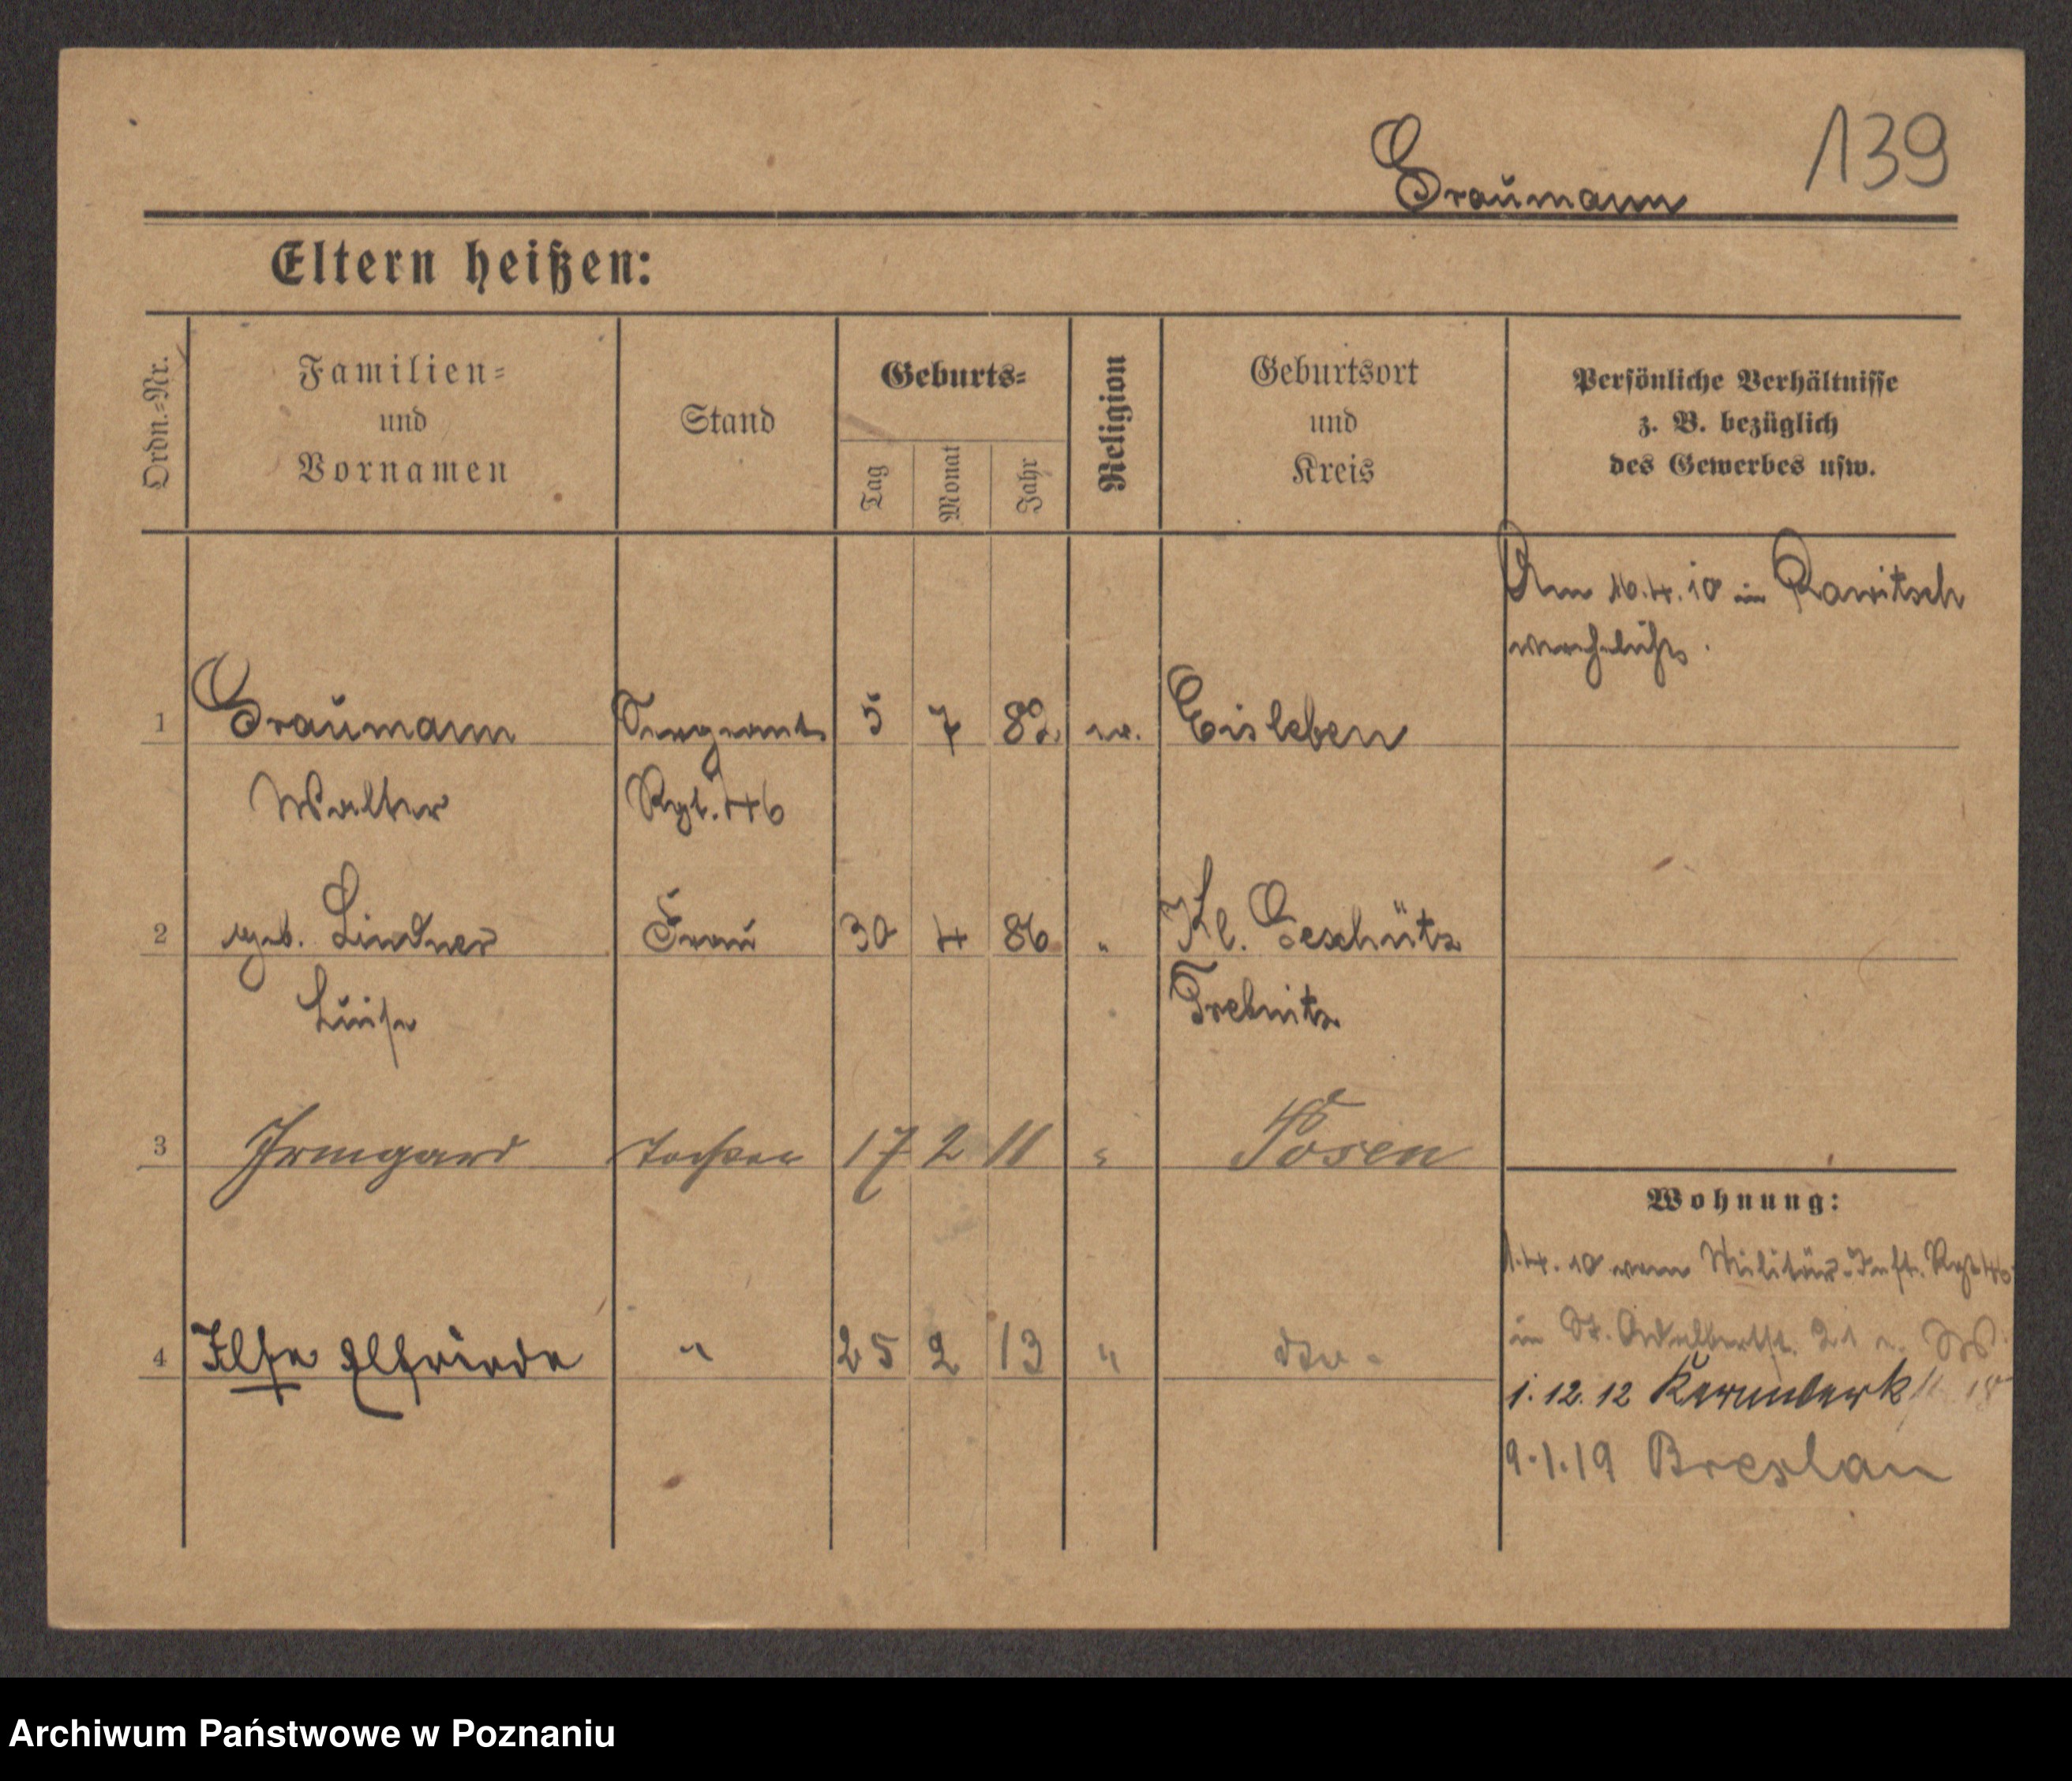 139
Graumann
Eltern heißen:
Ordn.-Nr.
Familien-
und
Vornamen
Stand
Geburts-
Tag
Monat
Jahr
Religion
Geburtsort
und
Kreis
Persönliche Verhältnisse
z. B. bezüglich
des Gewerbes usw.
Am 16.4.10 in Rawitsch
verehelicht.
1 Graumann Sergeant 5 7 82 ev. Eisleben
Walter Rgt. 46
2 geb. Lindner Frau 30 4 86 " Kl. Geschütz
Luise Trebnitz
3 Irmgard Tochter 17 2 11 " Posen
Wohnung:
1.4.10 vom Militär-Inft. Rgt 46
in St. Adalbertst. 21
4 Ilse Elfriede " 25 2 13 " dto.
1.12.12 Kernwerk
9.1.19 Breslau
Archiwum Państwowe w Poznaniu